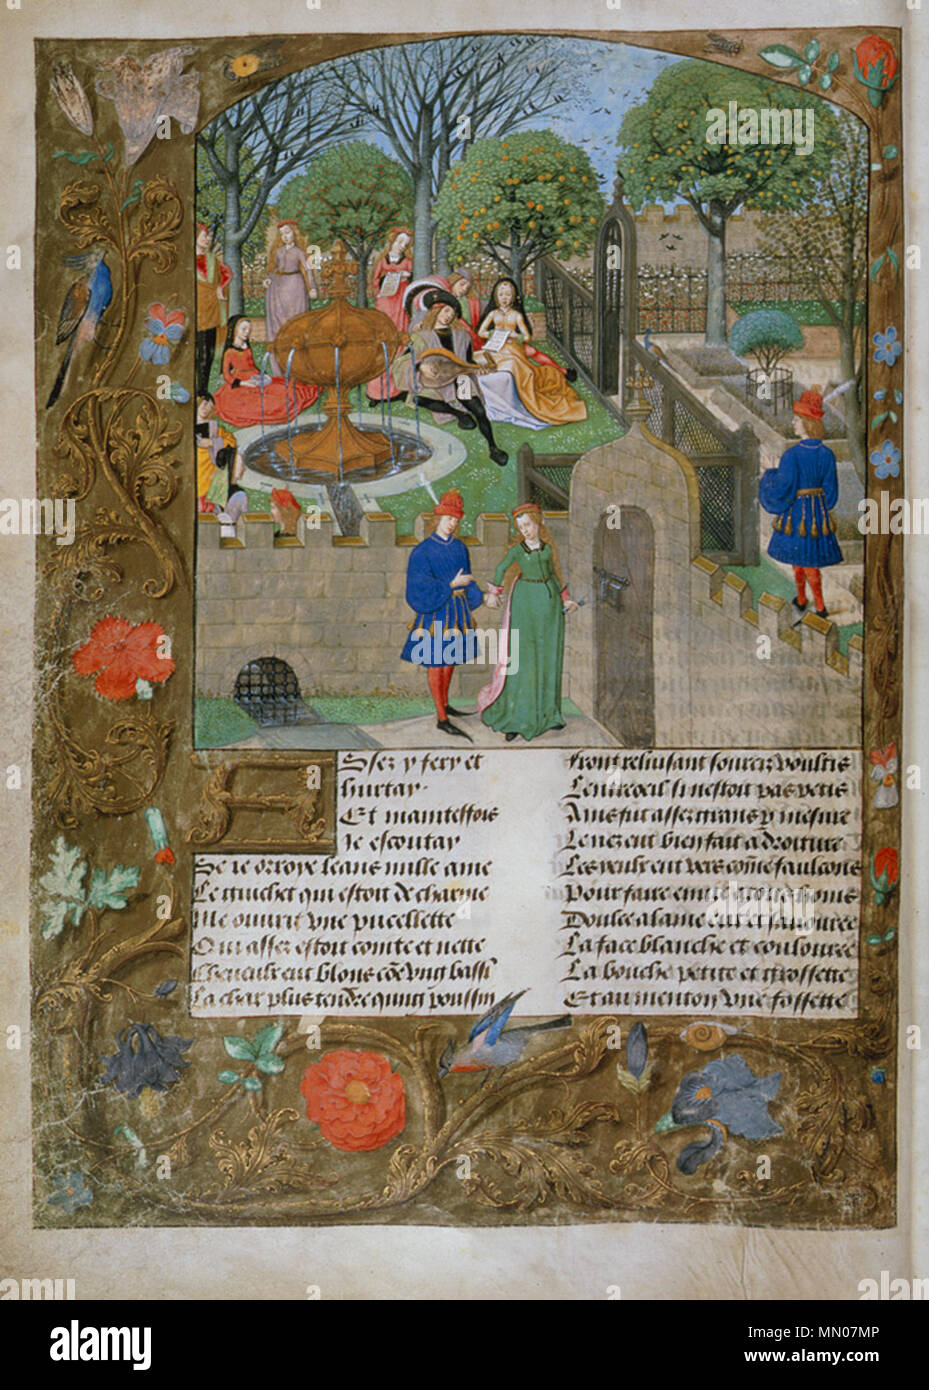 Assez y fery et
hurtay.
Et maintessois
Je escoutay
Se ie orroye leans nulle ame
Le guichet qui estoit de charme
Me ouurit vne pucellette
Qui assez estoit cointe et nette
Cheueulx eut blons cõe vng bassi
La char plus tendre qung poussin
Front reluisant sourcilz voultis
Lentreoeil si nestoit pas petis
Ains fut assez grans p mesure
Le nez eut bien fait a droiture
Les yeulx eut vers cõme faulcons
Pour faire enuie a ces
Doulce alaine eut et sauouree
La face blanche et coulouree
La bouche petite et grossette
Et au menton vne fossette
a alamy stock photo
alamy
Image ID: MN07MP
www.alamy.com